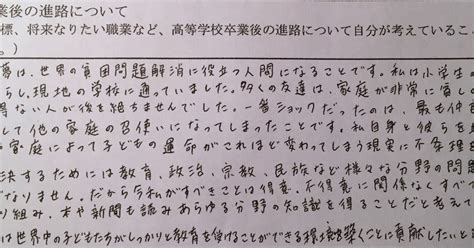 業後の進路について
標、将来なりたい職業など、高等学校卒業後の進路について自分が考えているこ
。)
夢は、世界の貧困問題解消に役立つ人間になることです。私は小学生
らし、現地の学校に通っていました。多くの友達は、家庭が非常に貧し
得ない人が後を絶ちませんでした。一番ショックだったのは、最も仲
して他の家庭の召使いになってしまったことです。私自身と彼らを
家庭によって子どもの運命がこれほど変わってしまう現実に不条理
決するためには教育、政治、宗教、民族など様々な分野の問題
なりません。だから今私がすべきことは得意、不得意に関係なくすべ
り組み、本や新聞も読みあらゆる分野の知識を得ることだと考えて
は世界中の子どもたちがしっかりと教育を受けることができる環境を築くことに貢献したいと